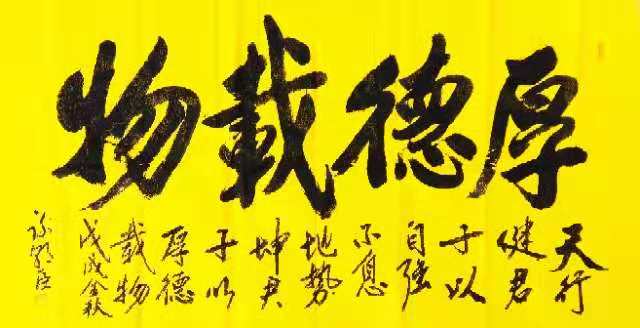 厚德載物
天行
健君
子以
自強
不息
地势
坤君
子以
厚德
載物
戊戌金秋